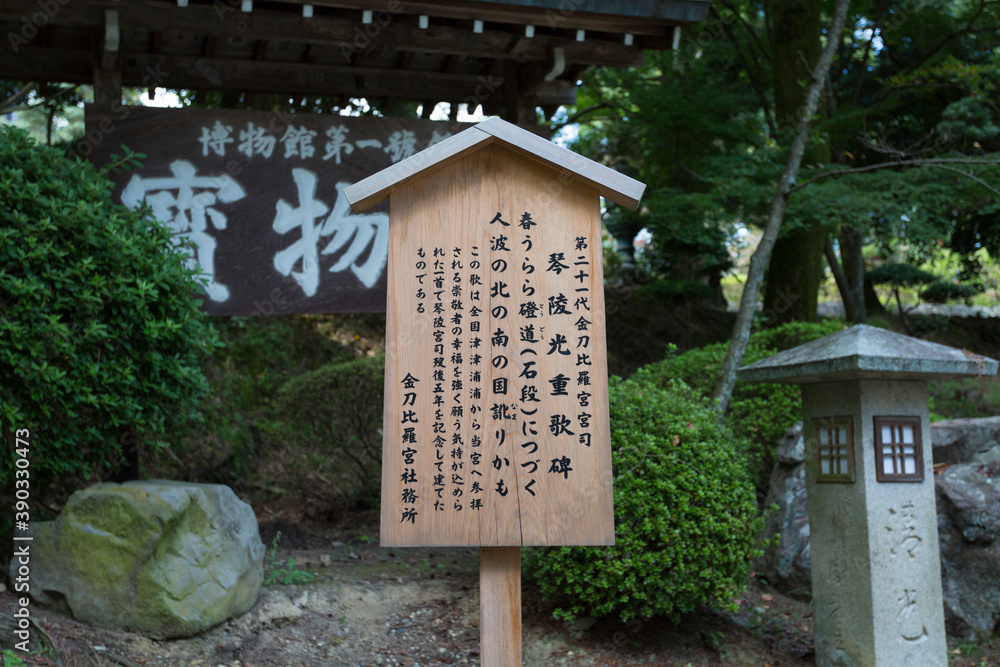 博物館第一號
寳物
第二十一代金刀比羅宮宮司
琴陵光重歌碑
春うらら磴道(石段)につづく
どう どう
人波の北の南の国訛りかも
なま
この歌は全国津津浦浦から当宮へ参拝
される崇敬者の幸福を強く願う気持が込めら
れた一首で琴陵宮司歿後五年を記念して建てた
ものである
金刀比羅宮社務所
清光
Adobe Stock
#390330473